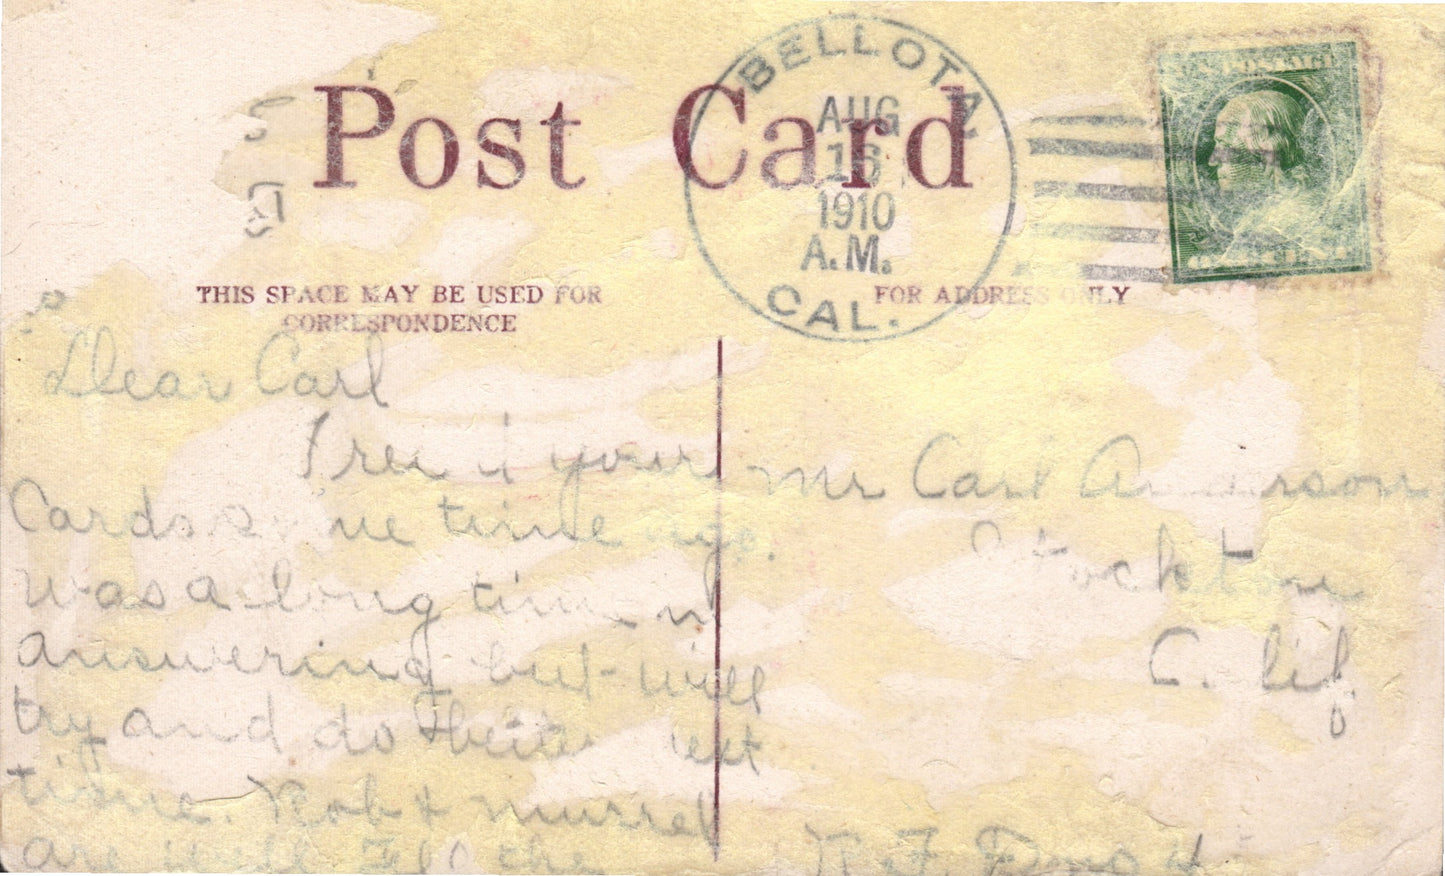 Post Card
BELLOTA,
AUG
16
1910
A.M.
CAL.
U.S. POSTAGE
ONE CENT
THIS SPACE MAY BE USED FOR
CORRESPONDENCE
FOR ADDRESS ONLY
Dear Carl
I rec'd your
Cards some time ago.
was a long time in
answering but will
try and do better next
time. Rob & Murrel
are well
the
Mr Carl Anderson
Stockton
Calif
R.F.D. no 4